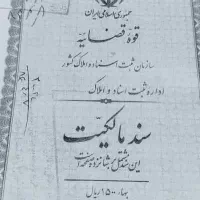 جمهوری اسلامی ایران
قوه قضائیه
سازمان ثبت اسناد و املاک کشور
اداره ثبت اسناد و املاک
سند مالکیت
این سند مشتمل بر شانزده صفحه است
بها ۱۵۰ ریال